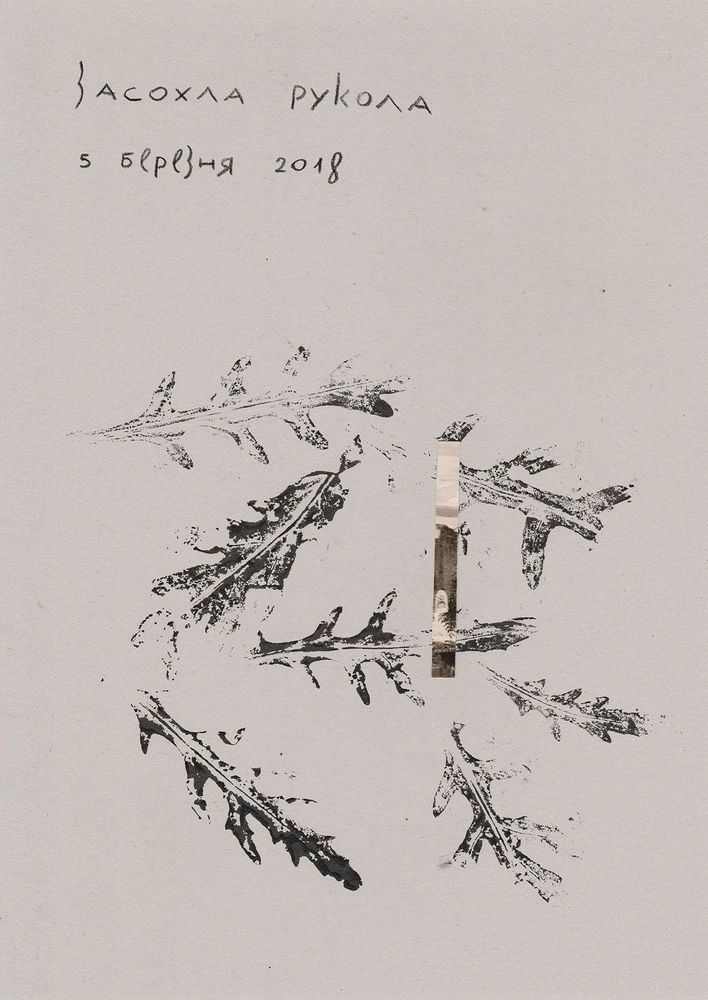 Засохла рукола
5 березня 2018